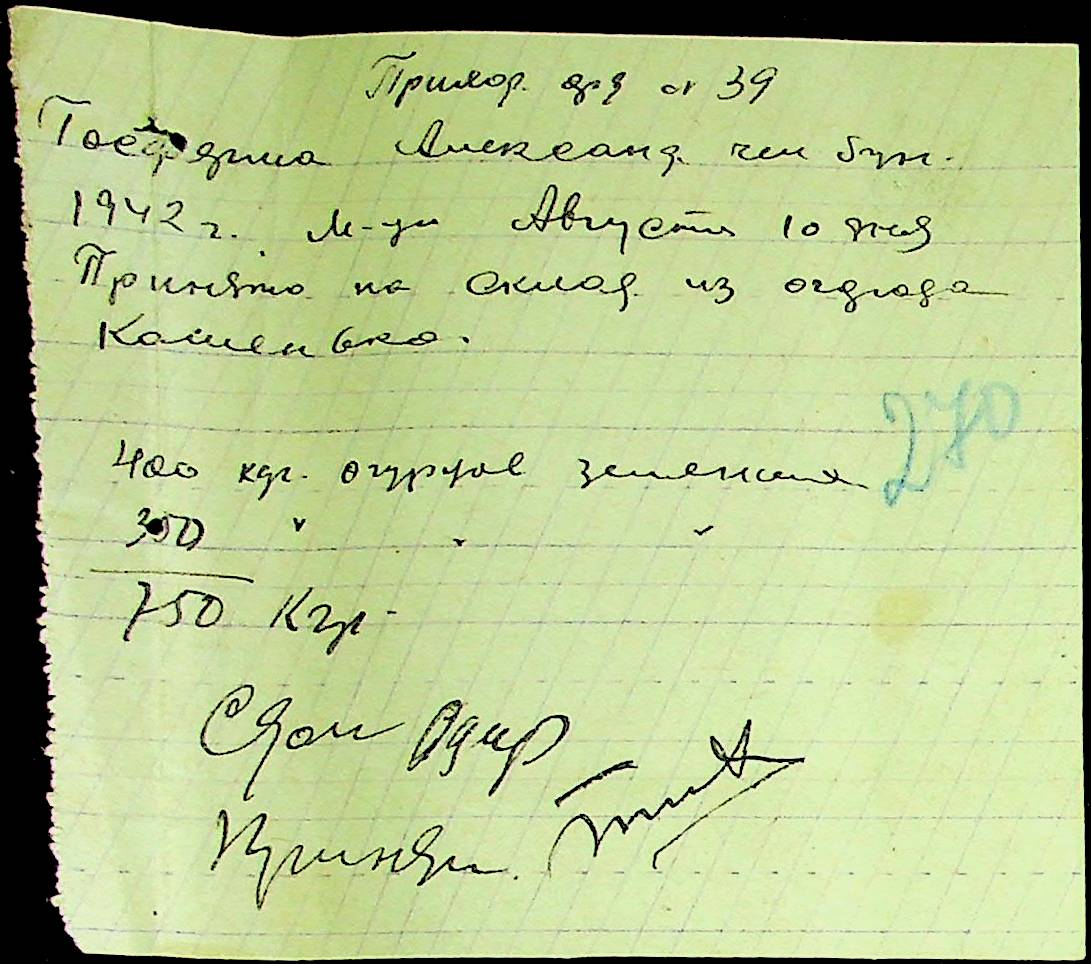 Приход. орд № 39
Александ.
1942 г. м-ца Августа 10 дня
Принято на склад из огорода
Каменька.
270
400 кгр. огурцов зеленых
350 " " "
750 Кгр.
Сдал
Принял